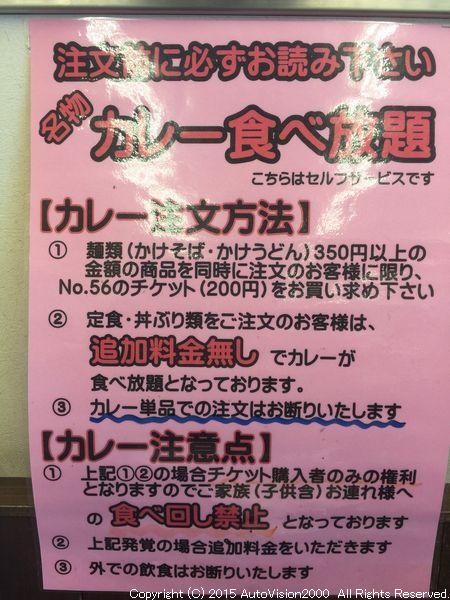 注文前に必ずお読み下さい
名物
カレー食べ放題
こちらはセルフサービスです
【カレー注文方法】
① 麺類(かけそば・かけうどん)350円以上の
金額の商品を同時に注文のお客様に限り、
No.56のチケット(200円)をお買い求め下さい
② 定食・丼ぶり類をご注文のお客様は、
追加料金無し でカレーが
食べ放題となっております。
③ カレー単品での注文はお断りいたします
【カレー注意点】
① 上記①②の場合チケット購入者のみの権利
となりますのでご家族(子供含)お連れ様へ
の 食べ回し禁止 となっております
② 上記発覚の場合追加料金をいただきます
③ 外での飲食はお断りいたします
Copyright (C) 2015 AutoVision2000 All Rights Reserved.